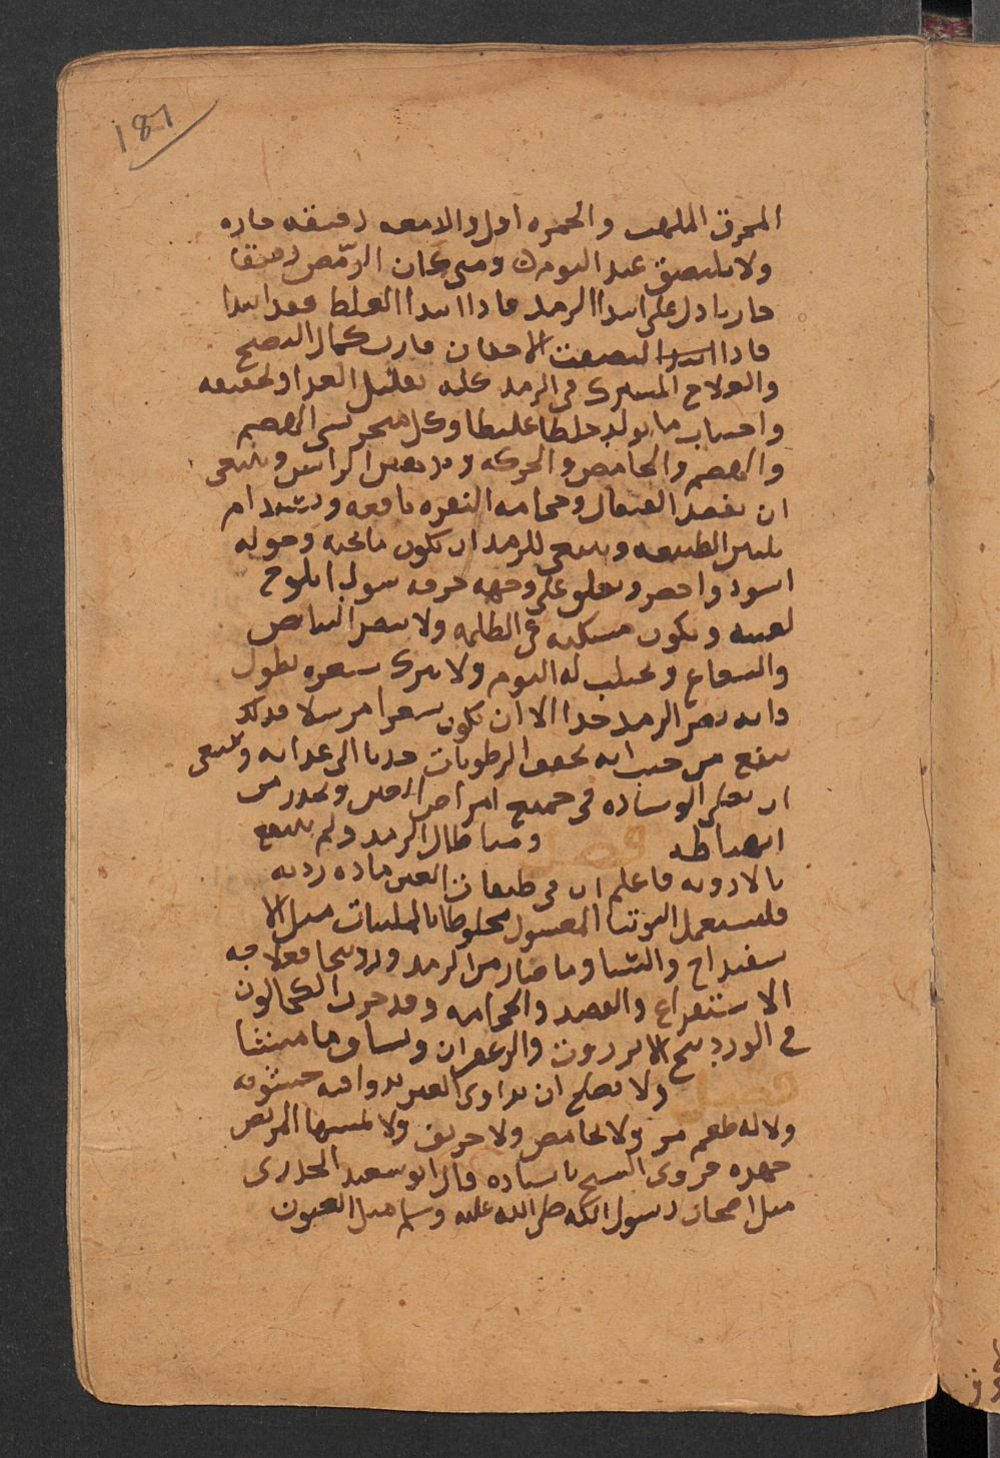 187
المحرق الملهب والحمره اول والدمعه رقيقه حاره
ولا يلتصق عند النوم ومتى كان الرمص رقيقا
حارا دل على ابتدا الرمد فاذا ابتدا الغلظ فقد ابتدا
فاذا التصقت الاجفان قارب كمال النضج
والعلاج المشترك في الرمد كله تقليل الغدا وتخفيفه
واجتناب ما يولد خلطا غليظا وكل مبخر سيئ الهضم
والحامض والحركه وتدهين الراس وينبغي
ان يفصد القيفال وحجامه النقره نافعه
تليين الطبيعه وينبغي للرمد ان يكون ما تحته وحوله
اسود واخضر ويعلق على وجهه خرقه سودا تلوح
لعينه ويكون مسكنه في الظلمه ولا يبصر البياض
والشعاع ويجلب له النوم ولا يترك شعره يطول
فانه يضر الرمد جدا الا ان يكون شعرا مرسلا فذلك
ينفع من حيث انه يجفف الرطوبات جذبا الى غدايه وينبغي
ان يعلى الوساده في جميع امراض العين ويحذر من
انهباطه فصل ومتى طال الرمد ولم ينتفع
بالادويه فاعلم ان في طبقات العين ماده رديه
فليستعمل التوتيا المغسول مخلوطا بالملينات مثل الا
سفيداج والنشا وما صار من الرمد وردينجا فعلاجه
الاستفراغ والفصد والحجامه وقد جرب الكحالون
في الوردينج الانزروت والزعفران
فصل ولا يصلح ان يداوى العين بدوا فيه خشونه
ولا له طعم مر ولا حامض ولا حريف ولا يمسها المريض
فروى الشيخ باسناده قال ابو سعيد الخدري
مثل اصحاب رسول الله صلى الله عليه وسلم مثل العيون